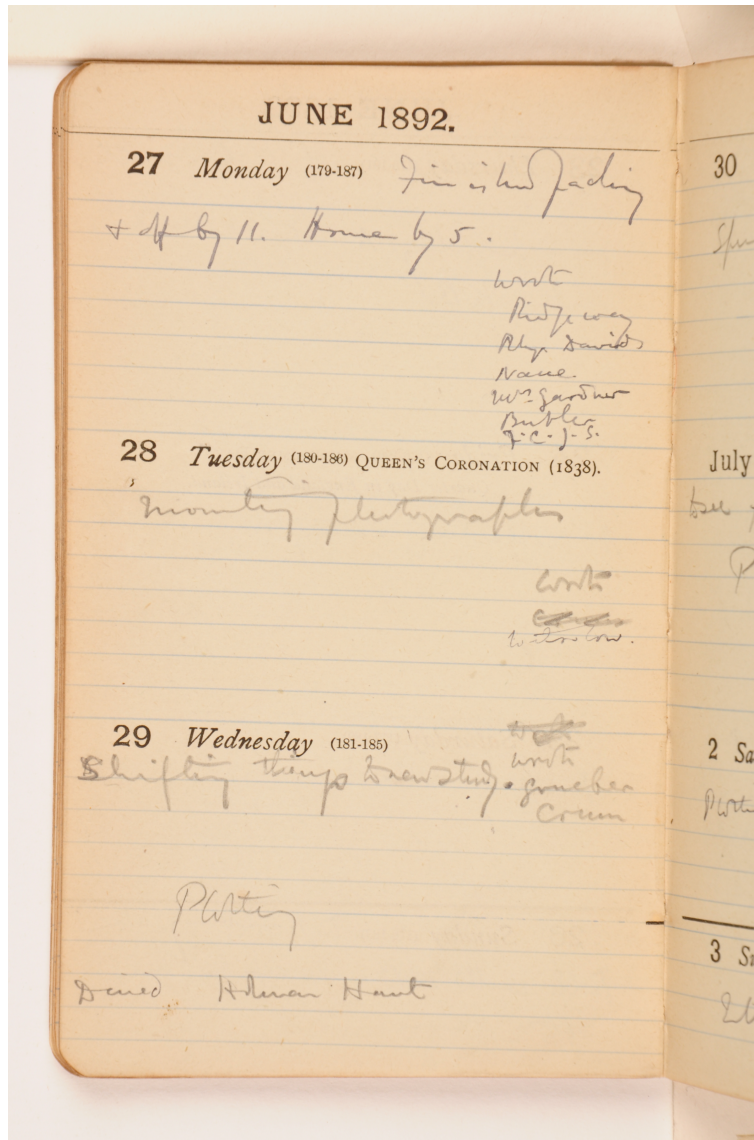 JUNE 1892.
27 Monday (179-187) Finished packing
& off by 11. Home by 5.
wrote
Ridgeway
Rhys Davids
Mrs. Gardner
Butler
F.C.J.S.
28 Tuesday (180-186) QUEEN'S CORONATION (1838).
Mounting photographs
wrote
29 Wednesday (181-185)
wrote
Shifting things to new study. Grueber
Crum
Plotting
Dined Holman Hunt
30
July
2 Sa
Plotti
3 S